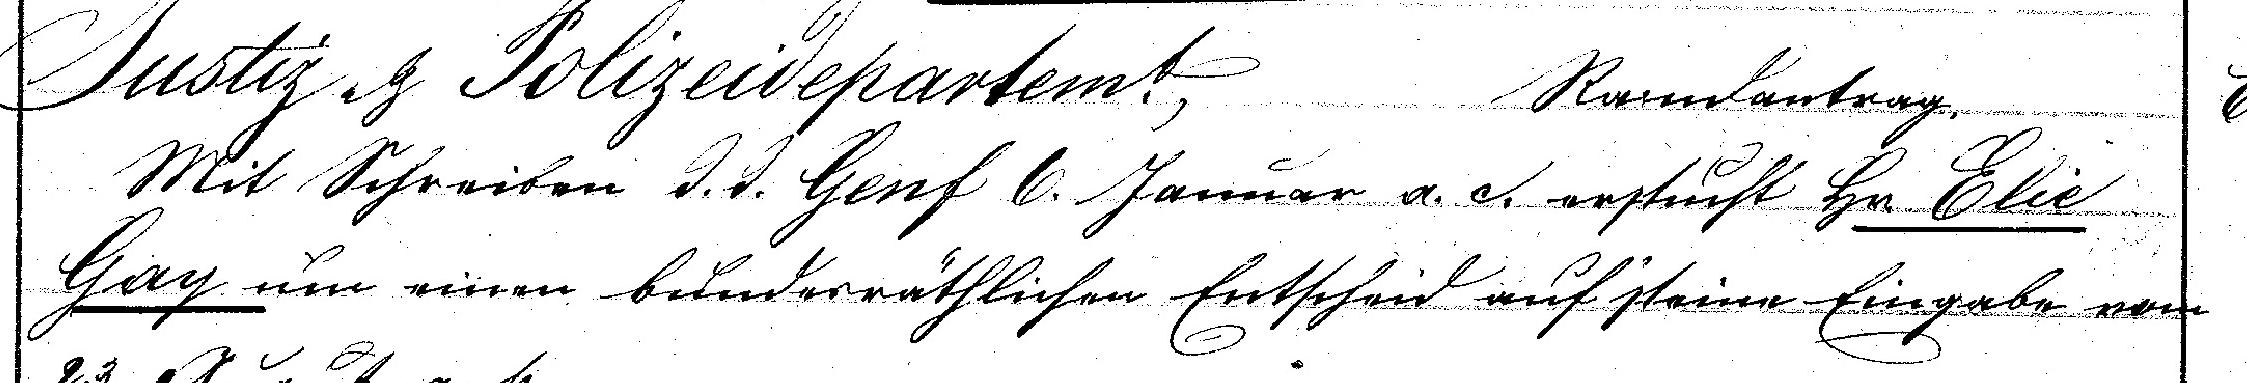 Justiz & Polizeidepartemt, Randantrag.
Mit Schreiben d. d. Genf 6. Januar a. c. ersucht Hr. Elie
Gay um einen bundesräthlichen Entscheid auf seine Eingabe vom
23